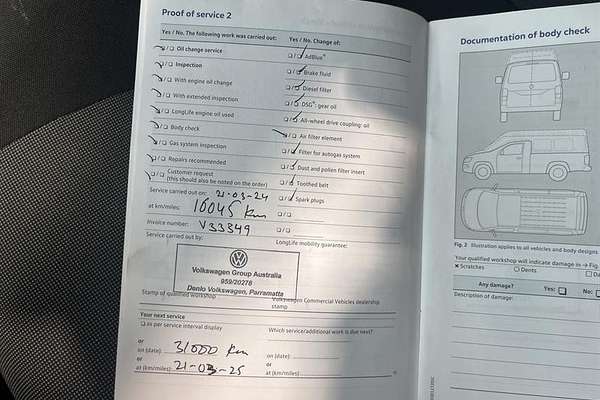 Proof of service 2
Yes / No. The following work was carried out:
Oil change service
Inspection
With engine oil change
With extended inspection
LongLife engine oil used
Body check
Gas system inspection
Repairs recommended
Customer request
(this should also be noted on the order)
Service carried out on: 21-03-24
at km/miles: 16045 km
Invoice number: V33349
Service carried out by:
Volkswagen Group Australia
959/20278
Denlo Volkswagen, Parramatta
Stamp of qualified workshop
Your next service
as per service interval display
or
on (date): 31000 km
or
at (km/miles): 21-03-25
Yes / No. Change of:
AdBlue®
Brake fluid
Diesel filter
DSG®: gear oil
All-wheel drive coupling: oil
Air filter element
Filter for autogas system
Dust and pollen filter insert
Toothed belt
Spark plugs
LongLife mobility guarantee:
Volkswagen Commercial Vehicles dealership
stamp
Which service/additional work is due next?
on (date):
or
at (km/miles)
Documentation of body check
Fig. 2 Illustration applies to all vehicles and body designs
Your qualified workshop will indicate damage in → Fig
× Scratches
○ Dents
Any damage?
Yes:
No
Description of damage: